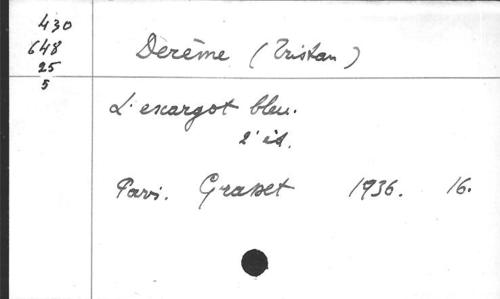 430
648
25
5
Derème (Tristan)
L'escargot bleu.
2' éd.
Pari. Grasset 1936. 16.